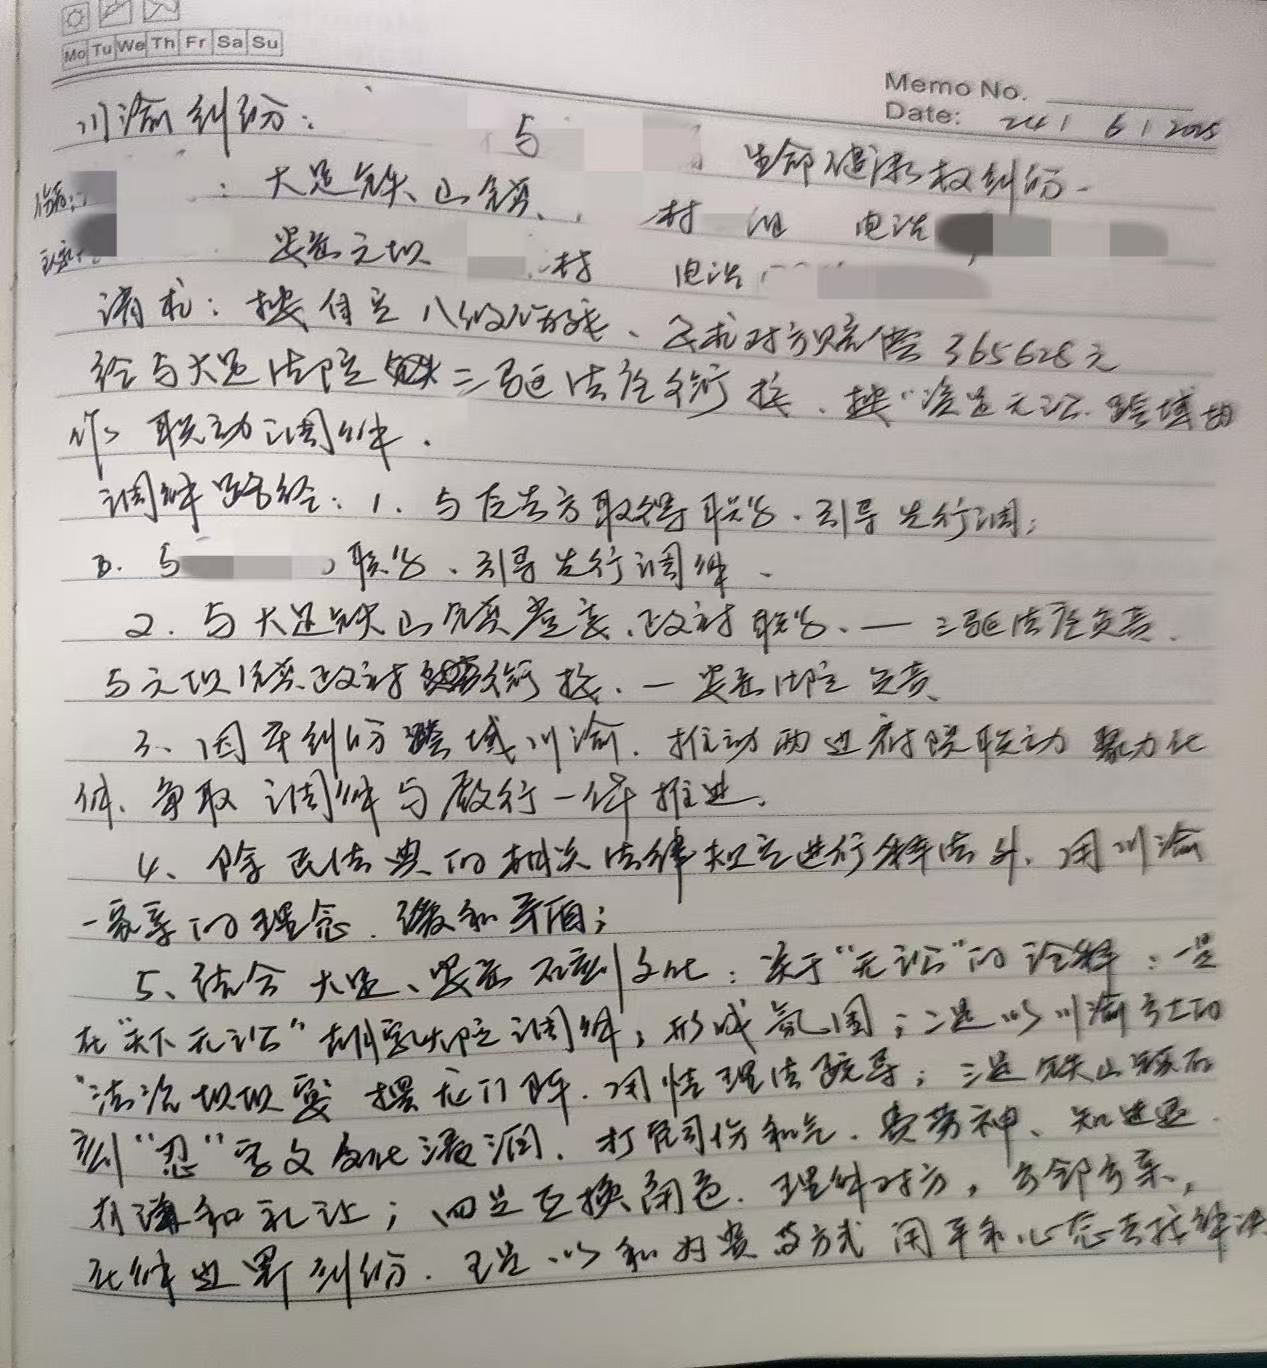 Mo Tu We Th Fr Sa Su
Memo No.
Date: 24 / 6 / 2025
川渝纠纷: 与 生命健康权纠纷.
: 大足铁山镇、 村 组 电话
安岳元坝 村 电话
请求: 按自定八级伤残、要求对方赔偿365628元
经与大足法院 三驱法庭衔接、按"资足无讼.跨域协
作"联动调解.
调解路径: 1. 与原告方取得联络、引导先行调;
B. 与 联络、引导先行调解、
2. 与大足铁山镇党委、政府联络、— 三驱法庭负责、
与元坝镇政府 衔接、— 安岳法院负责、
3、因本纠纷跨域川渝、推动两边府院联动聚力化
解、争取调解与履行一体推进、
4、除民法典的相关法律规定进行释法外、用川渝
一家亲的理念、缓和矛盾;
5、结合大足、安岳石刻文化: 关于"无讼"的诠释: 一是
在"天下无讼" 院调解, 形成氛围; 二是以川渝 的
"法治坝坝宴 摆龙门阵、用情理法疏导; 三是铁山镇石
刻"忍"字文化浸润、 和气、 费劳神、知进退、
有谦和礼让; 四是互换角色、理解对方, 乡邻乡亲,
化解边界纠纷、五是以和为贵的方式用平和心态去找解决